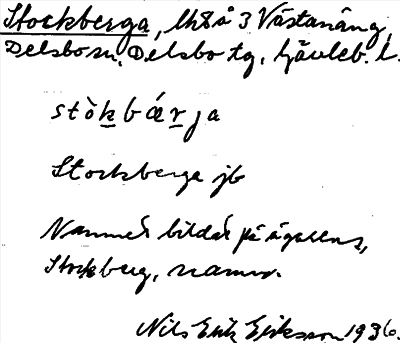 Stockberga, lht å 3 Västanäng,
Delsbo sn. Delsbo tg, Gävleb. l.
stòkbárja
Stockberga jb
Namnet bildat på ägarens,
Stockberg, namn.
Nils Erik Eriksson 1936.